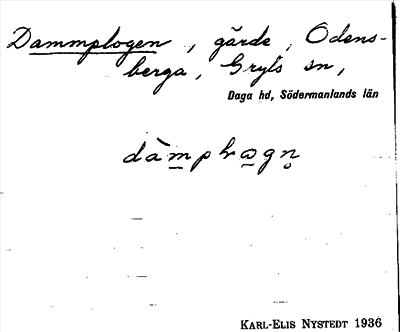 Dammplogen, gärde, Odens-
berga, Gryts sn,
Daga hd, Södermanlands län
KARL-ELIS NYSTEDT 1936